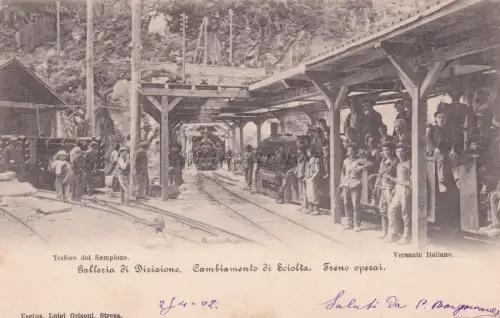 Traforo del Sempione.
Versante Italiano.
Galleria di Divizione. Cambiamento di Sciolta. Treno operai.
25-4-02.
Saluti da P.
Luigi Grisoni, Stresa.